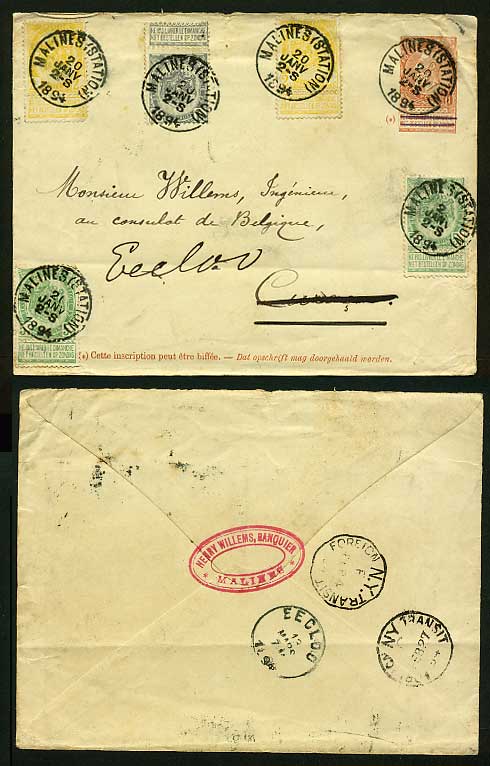 MALINES (STATION)
20
JANV
2-S
1894
NE PAS LIVRER LE DIMANCHE
NIET BESTELLEN OP ZONDAG
MALINES (STATION)
20
JANV
2-S
1894
MALINES (STATION)
20
JANV
2-S
1894
MALINES (STATION)
20
JANV
2-S
1894
(*)
Monsieur Willems, Ingénieur,
au consulat de Belgique,
Eecloo
MALINES (STATION)
JANV
2-S
1894
NE PAS LIVRER LE DIMANCHE
NIET BESTELLEN OP ZONDAG
MALINES (STATION)
JANV
2-S
1894
NE PAS LIVRER LE DIMANCHE
NIET BESTELLEN OP ZONDAG
(*) Cette inscription peut être biffée. — Dat opschrift mag doorgehaald worden.
HENRY WILLEMS, BANQUIER
* MALINES *
FOREIGN
N.Y. TRANSIT
EECLOO
MARS
1894
NY TRANSIT